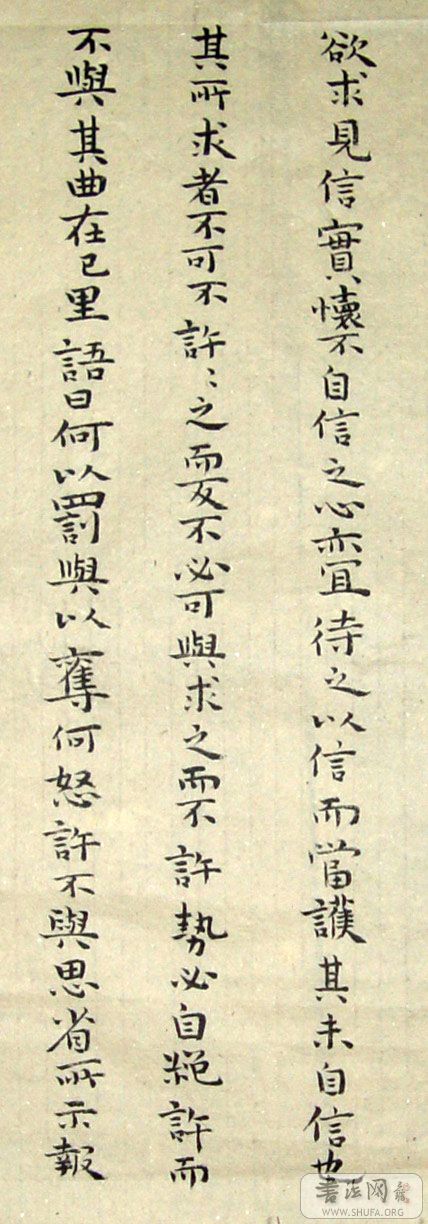 欲求見信實懷不自信之心亦宜待之以信而當護其未自信也
其所求者不可不許〻之而反不必可與求之而不許勢必自絕許而
不與其曲在己里語曰何以罰與以奪何怒許不與思省所示報
書法网
WWW.SHUFA.ORG